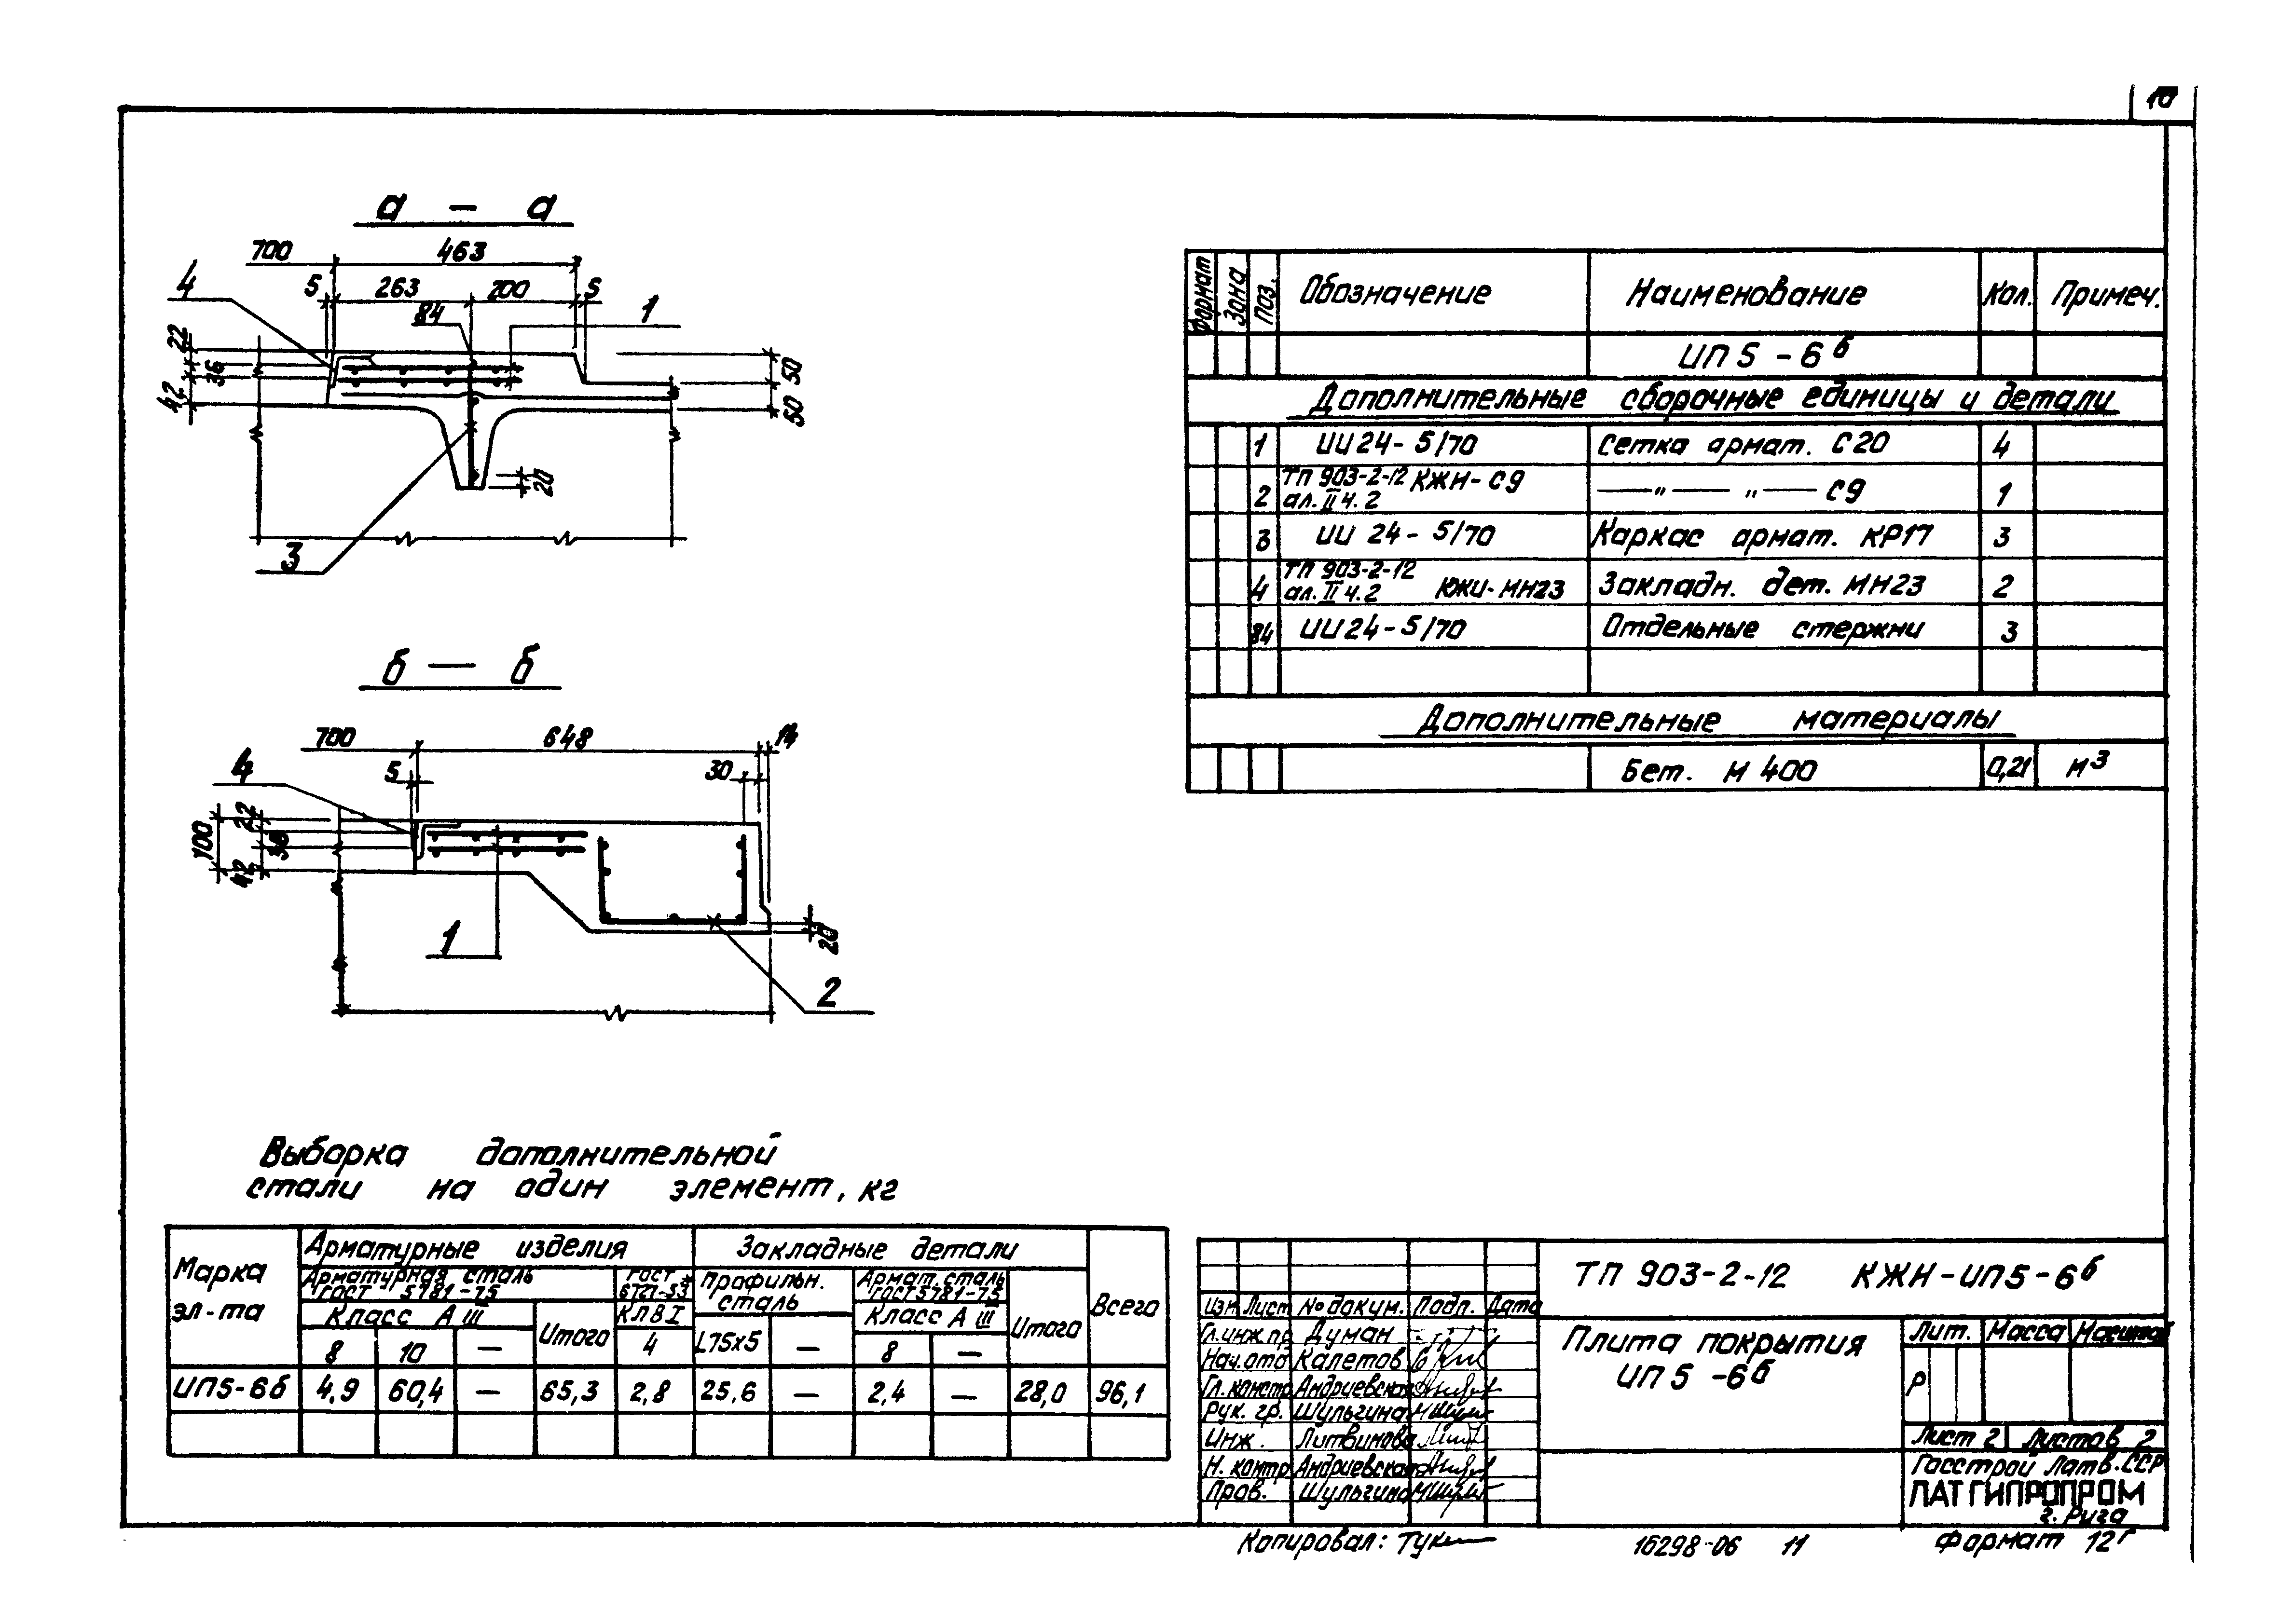 10
а - а
700 463
5 263 200 5
4
84 1
22
36
42
50
50
20
3
б - б
700 648 14
5 30
4
100
22
36
42
20
1
2
Формат Зона Поз. Обозначение Наименование Кол. Примеч.
ИП5-6б
Дополнительные сборочные единицы и детали
1 ИИ24-5/70 Сетка армат. С20 4
2 ТП 903-2-12 ал. II ч.2 КЖИ-С9 —"— "— С9 1
3 ИИ 24-5/70 Каркас армат. КР17 3
4 ТП 903-2-12 ал. II ч.2 КЖИ-МН23 Закладн. дет. МН23 2
84 ИИ24-5/70 Отдельные стержни 3
Дополнительные материалы
Бет. М 400 0,21 м3
Выборка дополнительной
стали на один элемент, кг
Марка эл-та Арматурные изделия Закладные детали Всего
Арматурная сталь ГОСТ 5781-75 ГОСТ 6727-53* Профильн. сталь Армат. сталь ГОСТ 5781-75 Итого
Класс А III Итого Кл В I Класс А III
8 10 — 4 L75x5 — 8 —
ИП5-6б 4,9 60,4 — 65,3 2,8 25,6 — 2,4 — 28,0 96,1
ТП 903-2-12 КЖИ-ИП5-6б
Изм. Лист № докум. Подп. Дата
Гл.инж.пр Думан
Нач.отд Калетов
Гл.констр Андриевская
Рук. гр. Шульгина
Инж. Литвинова
Н. контр Андриевская
Пров. Шульгина
Плита покрытия
ИП5-6б
Лит. Масса Масштаб
Р
Лист 2 Листов 2
Госстрой Латв.ССР
ЛАТГИПРОПРОМ
г. Рига
Копировал: 16298-06 11 Формат 12г